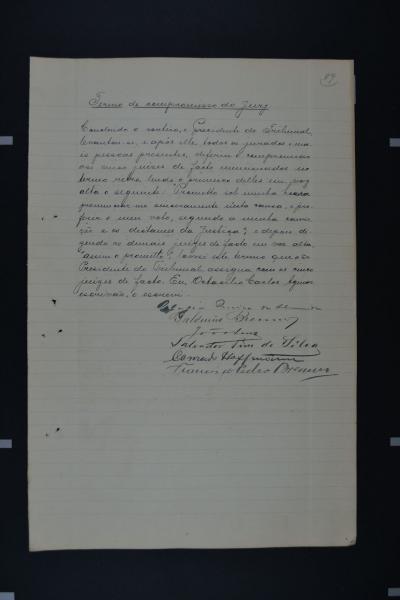 Termo de compromisso do Jury
Concluido o sorteio, o Presidente do Tribunal,
levantou-se, e após elle, todos os jurados e ma-
is pessoas presentes, deferiu o compromisso
aos cinco juizes de facto mencionados no
termo retro, lendo o primeiro delles em voz
alta o seguinte: "Prometto sob minha honra
pronunciar-me sinceramente nesta causa, e pro-
ferir o meu voto, segundo a minha convic-
ção e os dictames da Justiça"; e depois di-
zendo os demais juizes de facto em voz alta,
"assim o prometto". Lavrei este termo que o
Presidente do Tribunal assigna com os cinco
juizes de facto. Eu, Octacilio Carlos
escrivão, o escrevi.
de Almeida
Balduino Brenner
João
Salvador Pires da Silva
Conrado Hoffmann
Francisco Pedro Brenner